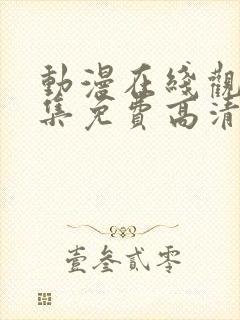 動漫在綫觀
集免費高清
壹叁貳零